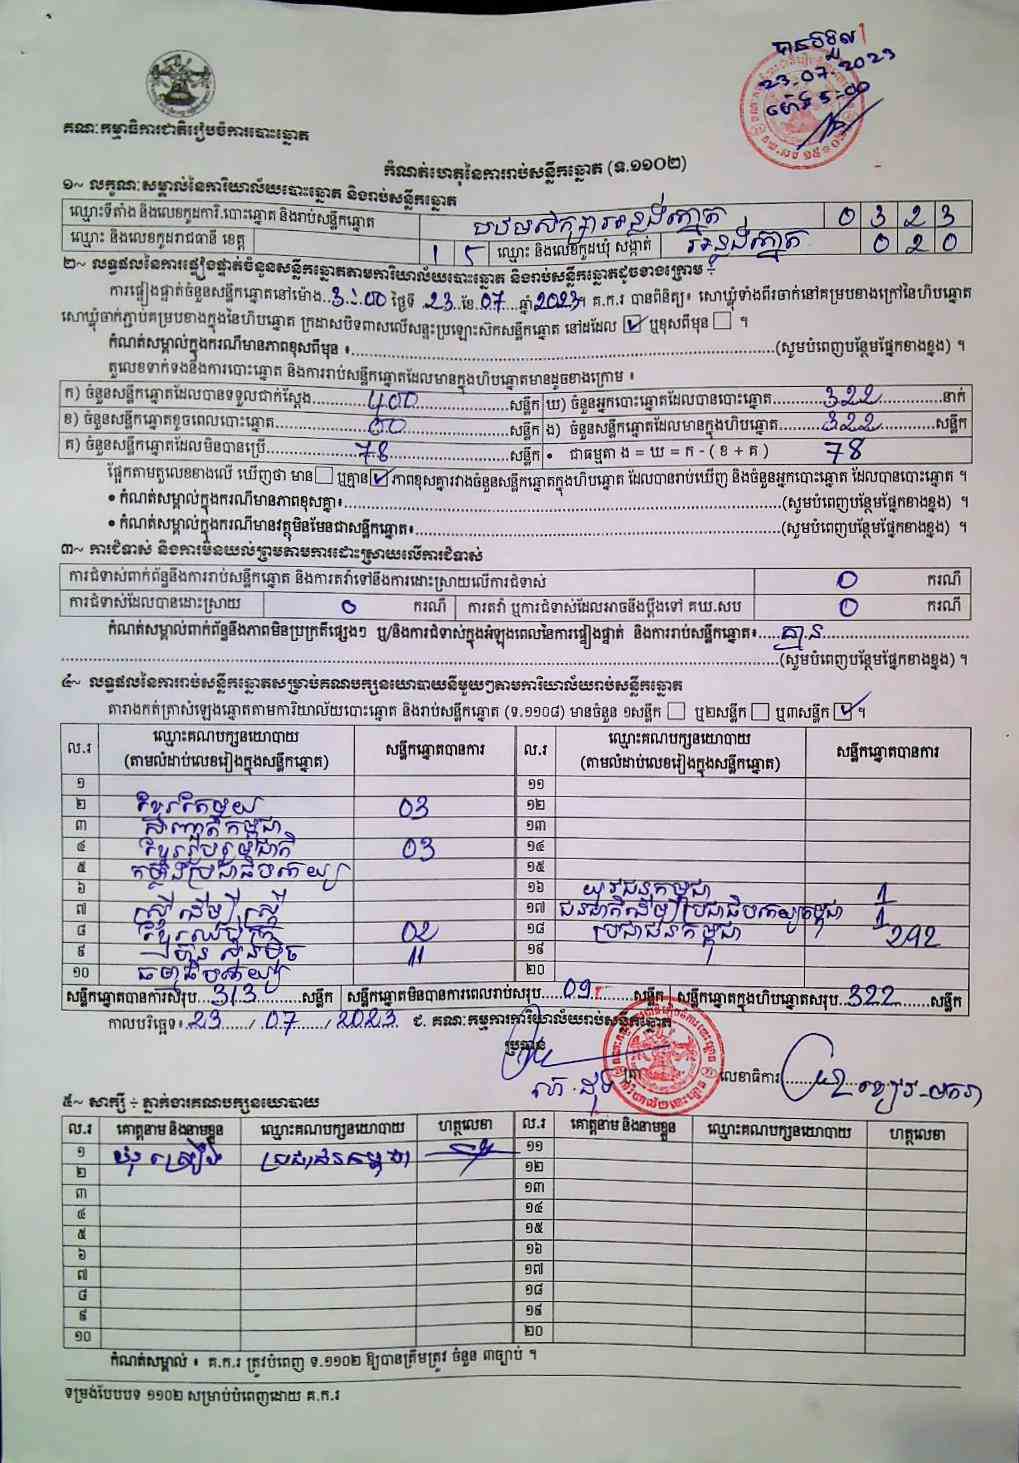 បានទទួល
23.07.2023
ម៉ោង 5:00
គណៈកម្មាធិការជាតិរៀបចំការបោះឆ្នោត
កំណត់ហេតុនៃការរាប់សន្លឹកឆ្នោត (ទ.១១០២)
១~ លក្ខណៈសម្គាល់នៃការិយាល័យបោះឆ្នោត និងរាប់សន្លឹកឆ្នោត
ឈ្មោះទីតាំង និងលេខកូដការិ.បោះឆ្នោត និងរាប់សន្លឹកឆ្នោត បឋមសិក្សាអន្លង់ត្នោត 0 3 2 3
ឈ្មោះ និងលេខកូដរាជធានី ខេត្ត 1 5 ឈ្មោះ និងលេខកូដឃុំ សង្កាត់ អន្លង់ត្នោត 0 2 0
២~ លទ្ធផលនៃការផ្ទៀងផ្ទាត់ចំនួនសន្លឹកឆ្នោតតាមការិយាល័យបោះឆ្នោត និងរាប់សន្លឹកឆ្នោតដូចខាងក្រោម ÷
ការផ្ទៀងផ្ទាត់ចំនួនសន្លឹកឆ្នោតនៅម៉ោង..3:00 ថ្ងៃទី .23.ខែ.07....ឆ្នាំ2023។ គ.ក.រ បានពិនិត្យ៖ សោឃ្លុំទាំងពីរចាក់នៅគម្របខាងក្រៅនៃហិបឆ្នោត
សោឃ្លុំចាក់ភ្ជាប់គម្របខាងក្នុងនៃហិបឆ្នោត ក្រដាសបិទពាសលើសន្ទះប្រឡោះស៊កសន្លឹកឆ្នោត នៅដដែល ☑ ឬខុសពីមុន ☐ ។
កំណត់សម្គាល់ក្នុងករណីមានភាពខុសពីមុន ៖..........(សូមបំពេញបន្ថែមផ្នែកខាងខ្នង) ។
តួលេខទាក់ទងនឹងការបោះឆ្នោត និងការរាប់សន្លឹកឆ្នោតដែលមានក្នុងហិបឆ្នោតមានដូចខាងក្រោម ៖
ក) ចំនួនសន្លឹកឆ្នោតដែលបានទទួលជាក់ស្តែង......400......សន្លឹក ឃ) ចំនួនអ្នកបោះឆ្នោតដែលបានបោះឆ្នោត......322......នាក់
ខ) ចំនួនសន្លឹកឆ្នោតខូចពេលបោះឆ្នោត......00......សន្លឹក ង) ចំនួនសន្លឹកឆ្នោតដែលមានក្នុងហិបឆ្នោត......322......សន្លឹក
គ) ចំនួនសន្លឹកឆ្នោតដែលមិនបានប្រើ......78......សន្លឹក • ជាធម្មតា ង = ឃ = ក - ( ខ + គ ) 78
ផ្អែកតាមតួលេខខាងលើ ឃើញថា មាន☐ ឬគ្មាន☑ ភាពខុសគ្នារវាងចំនួនសន្លឹកឆ្នោតក្នុងហិបឆ្នោត ដែលបានរាប់ឃើញ និងចំនួនអ្នកបោះឆ្នោត ដែលបានបោះឆ្នោត ។
• កំណត់សម្គាល់ក្នុងករណីមានភាពខុសគ្នា៖..........(សូមបំពេញបន្ថែមផ្នែកខាងខ្នង) ។
• កំណត់សម្គាល់ក្នុងករណីមានវត្ថុមិនមែនជាសន្លឹកឆ្នោត៖..........(សូមបំពេញបន្ថែមផ្នែកខាងខ្នង) ។
៣~ ការជំទាស់ និងការមិនយល់ព្រមតាមការដោះស្រាយលើការជំទាស់
ការជំទាស់ពាក់ព័ន្ធនឹងការរាប់សន្លឹកឆ្នោត និងការតវ៉ាទៅនឹងការដោះស្រាយលើការជំទាស់ 0 ករណី
ការជំទាស់ដែលបានដោះស្រាយ 0 ករណី ការតវ៉ា ឬការជំទាស់ដែលអាចនឹងប្តឹងទៅ គឃ.សប 0 ករណី
កំណត់សម្គាល់ពាក់ព័ន្ធនឹងភាពមិនប្រក្រតីផ្សេងៗ ឬ/និងការជំទាស់ក្នុងអំឡុងពេលនៃការផ្ទៀងផ្ទាត់ និងការរាប់សន្លឹកឆ្នោត៖.....គ្មាន..........
..........(សូមបំពេញបន្ថែមផ្នែកខាងខ្នង) ។
៤~ លទ្ធផលនៃការរាប់សន្លឹកឆ្នោតសម្រាប់គណបក្សនយោបាយនីមួយៗតាមការិយាល័យរាប់សន្លឹកឆ្នោត
តារាងកត់ត្រាសំឡេងឆ្នោតតាមការិយាល័យបោះឆ្នោត និងរាប់សន្លឹកឆ្នោត (ទ.១១០៨) មានចំនួន ១សន្លឹក ☐ ឬ២សន្លឹក ☐ ឬ៣សន្លឹក ☑ ។
ល.រ ឈ្មោះគណបក្សនយោបាយ សន្លឹកឆ្នោតបានការ ល.រ ឈ្មោះគណបក្សនយោបាយ សន្លឹកឆ្នោតបានការ
(តាមលំដាប់លេខរៀងក្នុងសន្លឹកឆ្នោត) (តាមលំដាប់លេខរៀងក្នុងសន្លឹកឆ្នោត)
១ ១១
២ ខ្មែរតែមួយ 03 ១២
៣ សញ្ជាតិកម្ពុជា ១៣
៤ ខ្មែររួបរួមជាតិ 03 ១៤
៥ កម្លាំងប្រជាធិបតេយ្យ ១៥
៦ ១៦ យុវជនកម្ពុជា 1
៧ ស្ត្រីដើម្បីស្ត្រី ១៧ ជនជាតិដើមប្រជាធិបតេយ្យកម្ពុជា 1
៨ 02 ១៨ ប្រជាជនកម្ពុជា 292
៩ ហ៊្វុនស៊ិនប៉ិច 11 ១៩
១០ ធម្មាធិបតេយ្យ ២០
សន្លឹកឆ្នោតបានការសរុប...313...សន្លឹក សន្លឹកឆ្នោតមិនបានការពេលរាប់សរុប....09....សន្លឹក សន្លឹកឆ្នោតក្នុងហិបឆ្នោតសរុប..322.....សន្លឹក
កាលបរិច្ឆេទ៖ 23 / 07 / 2023 ជ. គណៈកម្មការការិយាល័យរាប់សន្លឹកឆ្នោត
ប្រធាន
ត្រា លេខាធិការ
៥~ សាក្សី ÷ ភ្នាក់ងារគណបក្សនយោបាយ
ល.រ គោត្តនាម និងនាមខ្លួន ឈ្មោះគណបក្សនយោបាយ ហត្ថលេខា ល.រ គោត្តនាម និងនាមខ្លួន ឈ្មោះគណបក្សនយោបាយ ហត្ថលេខា
១ ប្រជាជនកម្ពុជា ១១
២ ១២
៣ ១៣
៤ ១៤
៥ ១៥
៦ ១៦
៧ ១៧
៨ ១៨
៩ ១៩
១០ ២០
កំណត់សម្គាល់ ៖ គ.ក.រ ត្រូវបំពេញ ទ.១១០២ ឱ្យបានត្រឹមត្រូវ ចំនួន ៣ច្បាប់ ។
ទម្រង់បែបបទ ១១០២ សម្រាប់បំពេញដោយ គ.ក.រ